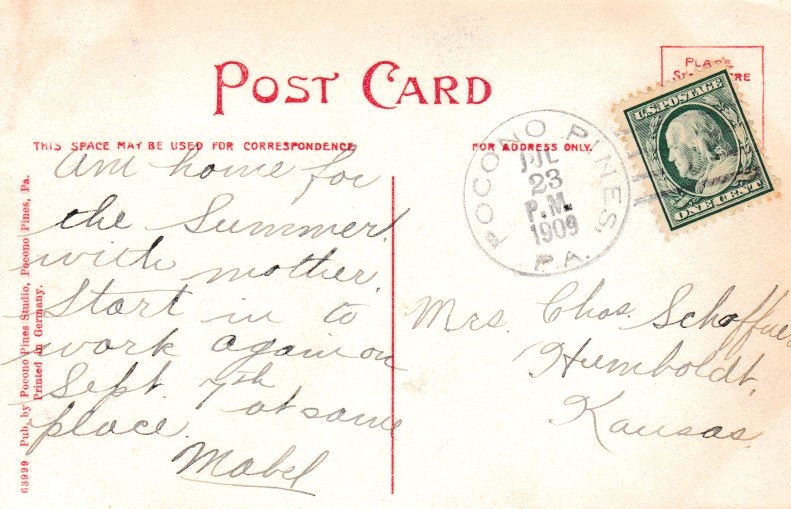 POST CARD
THIS SPACE MAY BE USED FOR CORRESPONDENCE
FOR ADDRESS ONLY.
PLACE
U.S. POSTAGE
ONE CENT
POCONO PINES,
JUL
23
P.M.
1909
P.A.
am home for
the Summer
with mother.
Start in to
work again on
Sept. 7th
at same
place.
Mabel
Mrs. Chas.
Humboldt,
Kansas
63999 Pub. by Pocono Pines Studio, Pocono Pines, Pa.
Printed in Germany.